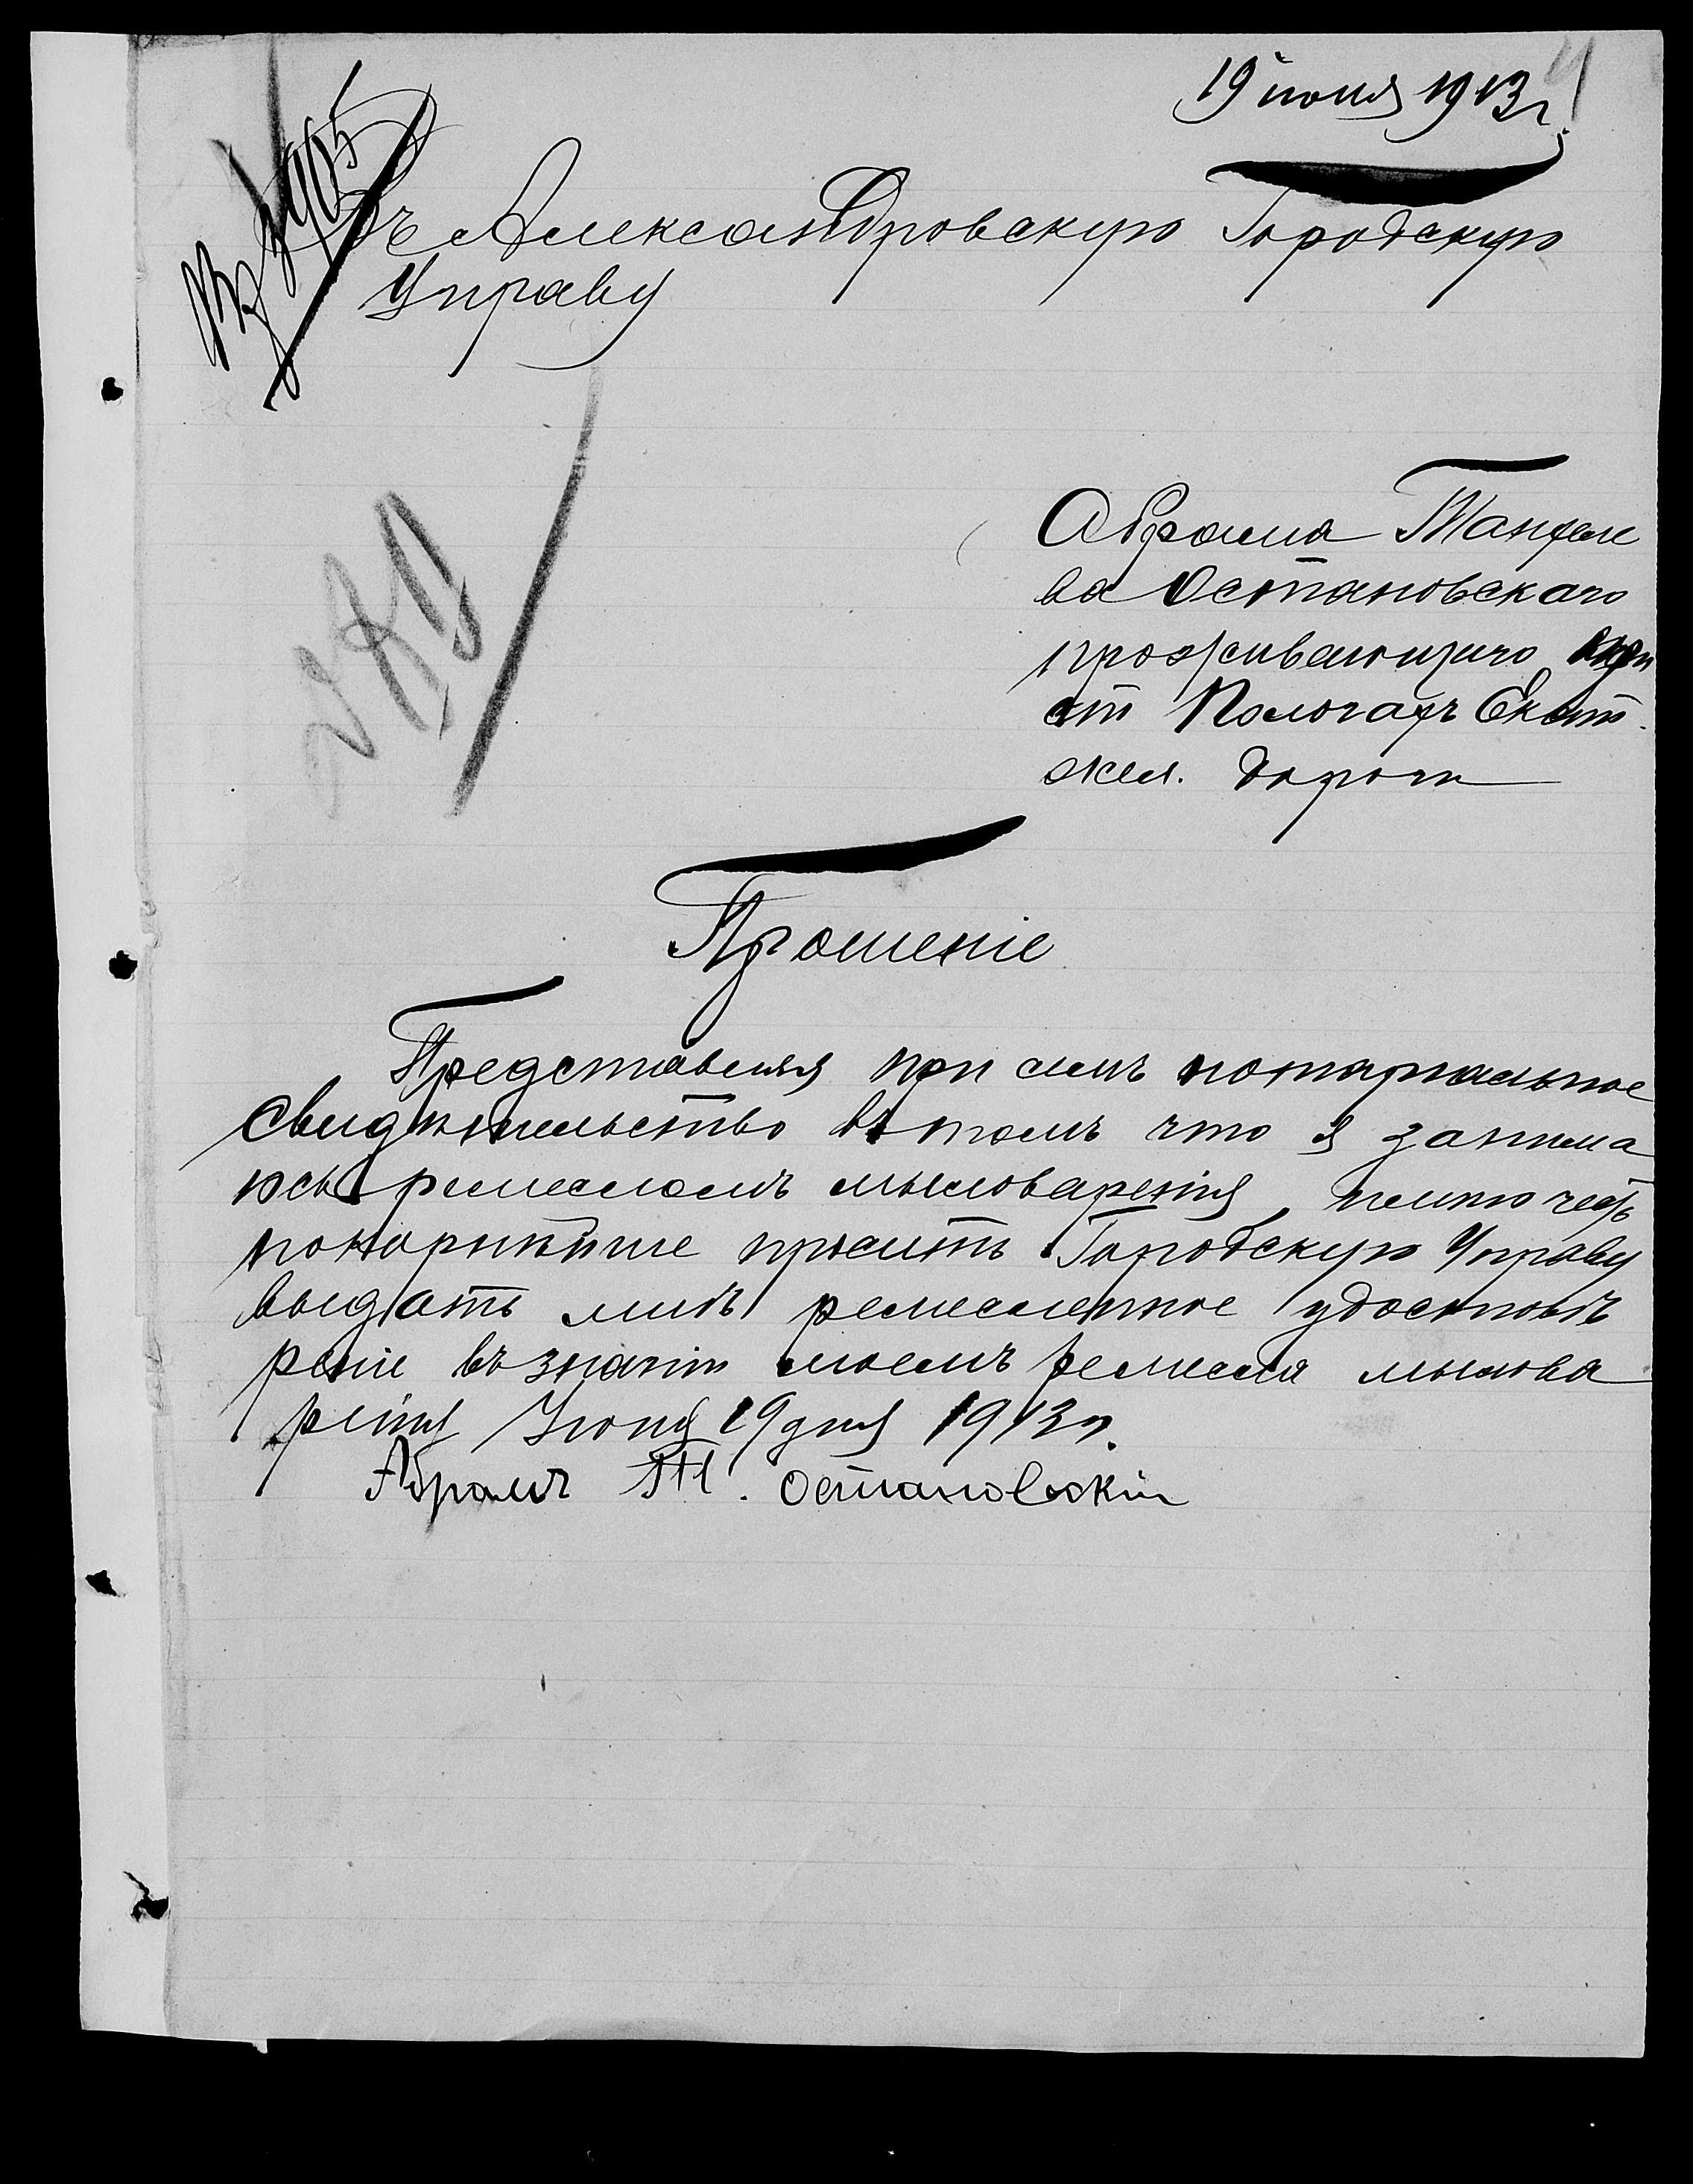 19 июня 1913 г.
Въ Александровскую Городскую
Управу
Абрама Танхеле
ва Остановскаго
проживающаго при
ст Пологахъ Екат.
жел. дороги
Прошеніе
Представляя при семъ нотаріальное
свидѣтельство въ томъ что я занима
юсь ремесломъ мыловаренія, имѣю честь
покорнѣйше просить Городскую Управу
выдать мнѣ ремесленное удостовѣ
реніе въ знаніи моемъ ремесла мылова
ренія Іюня 19 дня 1913 г.
Абрамъ Т. Остановскій